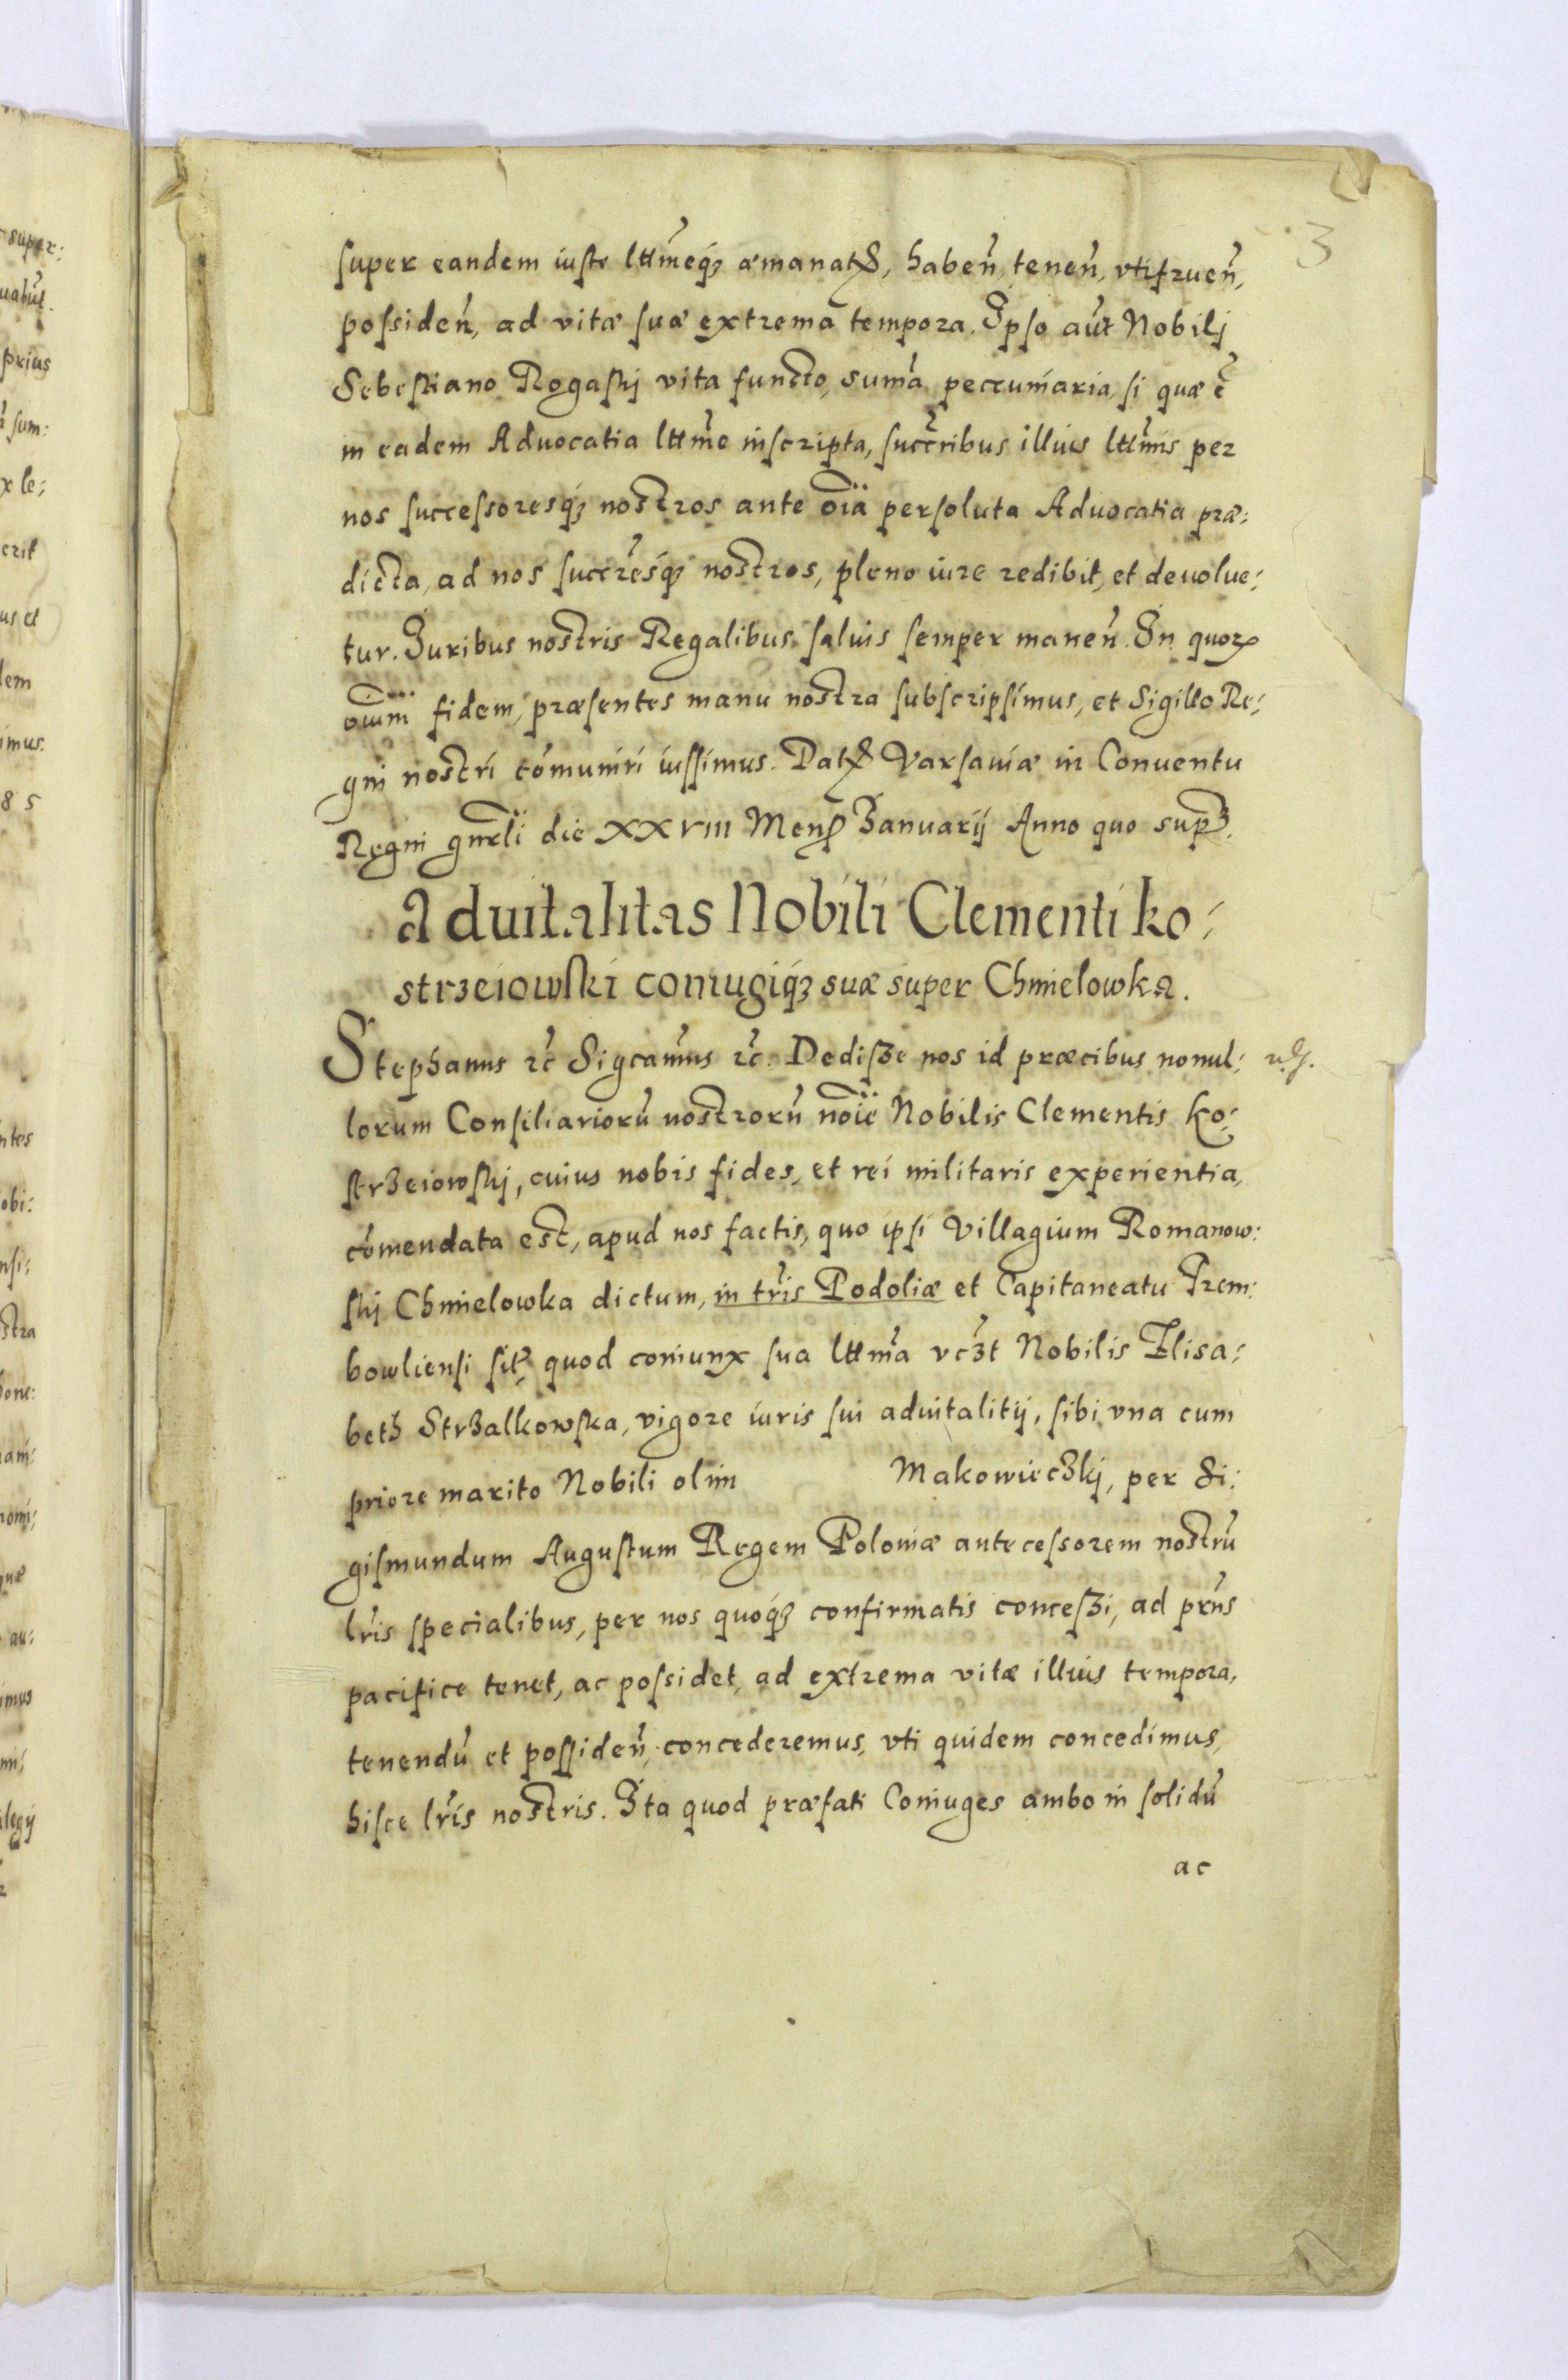 3
super eandem iuste lttmeq́ꝫ æmanatꝭ, habeñ, teneñ, vtifrueñ,
possideñ, ad vitæ suæ extrema tempora. Ipso aut̃ Nobilj
Sebestiano Rogaskj vita functo, sum̃a peccuniaria, si quæ ẽ
in eadem Aduocatia lttm̃e inscripta, succr̃ibus illius lttm̃is per
nos successoresq́ꝫ nostros ante oĩa persoluta Aduocatia præ:
dicta, ad nos succr̃esq́ꝫ nostros, pleno iure redibit, et deuolue:
tur. Iuribus nostris Regalibus saluis semper maneñ. In quoꝝ
oĩum fidem, præsentes manu nostra subscripsimus, et Sigillo Re:
gni nostri com̃uniri iussimus. Datꝭ Varsauiæ in Conuentu
Regni gnr̃li die XXVIII Menß Ianuarij Anno quo supꝫ.
Aduitalitas Nobili Clementi Ko:
strzeiowski coniugiq́ꝫ suæ super Chmielowka.
Stephanus ꝛc̃ Sigcam̃us ꝛc̃. Dedisze nos id præcibus nonul:
lorum Consiliariorũ nostrorũ noĩe Nobilis Clementis Ko:
strzeiowskj, cuius nobis fides, et rei militaris experientia,
com̃endata est, apud nos factis, quo ipsi Villagium Romanow:
skj Chmielowka dictum, in tr̃is Podoliæ et Capitaneatu Trem:
bowliensi sitꝫ, quod coniunx sua lttm̃a vcz̃t Nobilis Elisa:
beth Strzalkowska, vigore iuris sui aduitalitij, sibi vna cum
priore marito Nobili olim Makowieczkj, per Si:
gismundum Augustum Regem Poloniæ antecessorem nostrũ
lr̃is specialibus, per nos quoq́ꝫ confirmatis conceszi, ad prñs
pacifice tenet, ac possidet, ad extrema vitæ illius tempora,
tenendũ et possideñ, concederemus, vti quidem concedimus,
hisce lr̃is nostris. Ita quod præfati Coniuges ambo in solidũ
ac